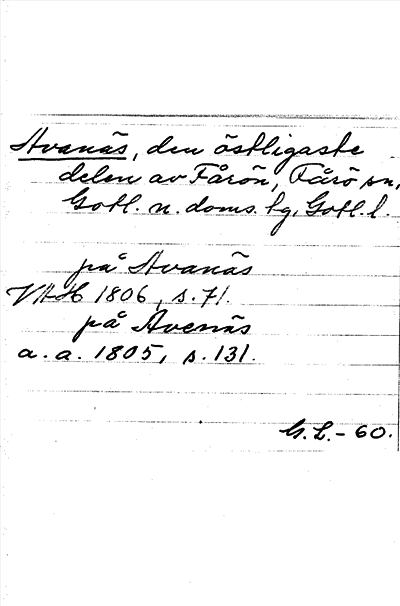 Avanäs, den östligaste
delen av Fårön, Fårö sn,
Gotl. n. doms. tg, Gotl. l.
på Avanäs
VAH 1806, s. 71.
på Avenäs
a. a. 1805, s. 131.
G. L. - 60.